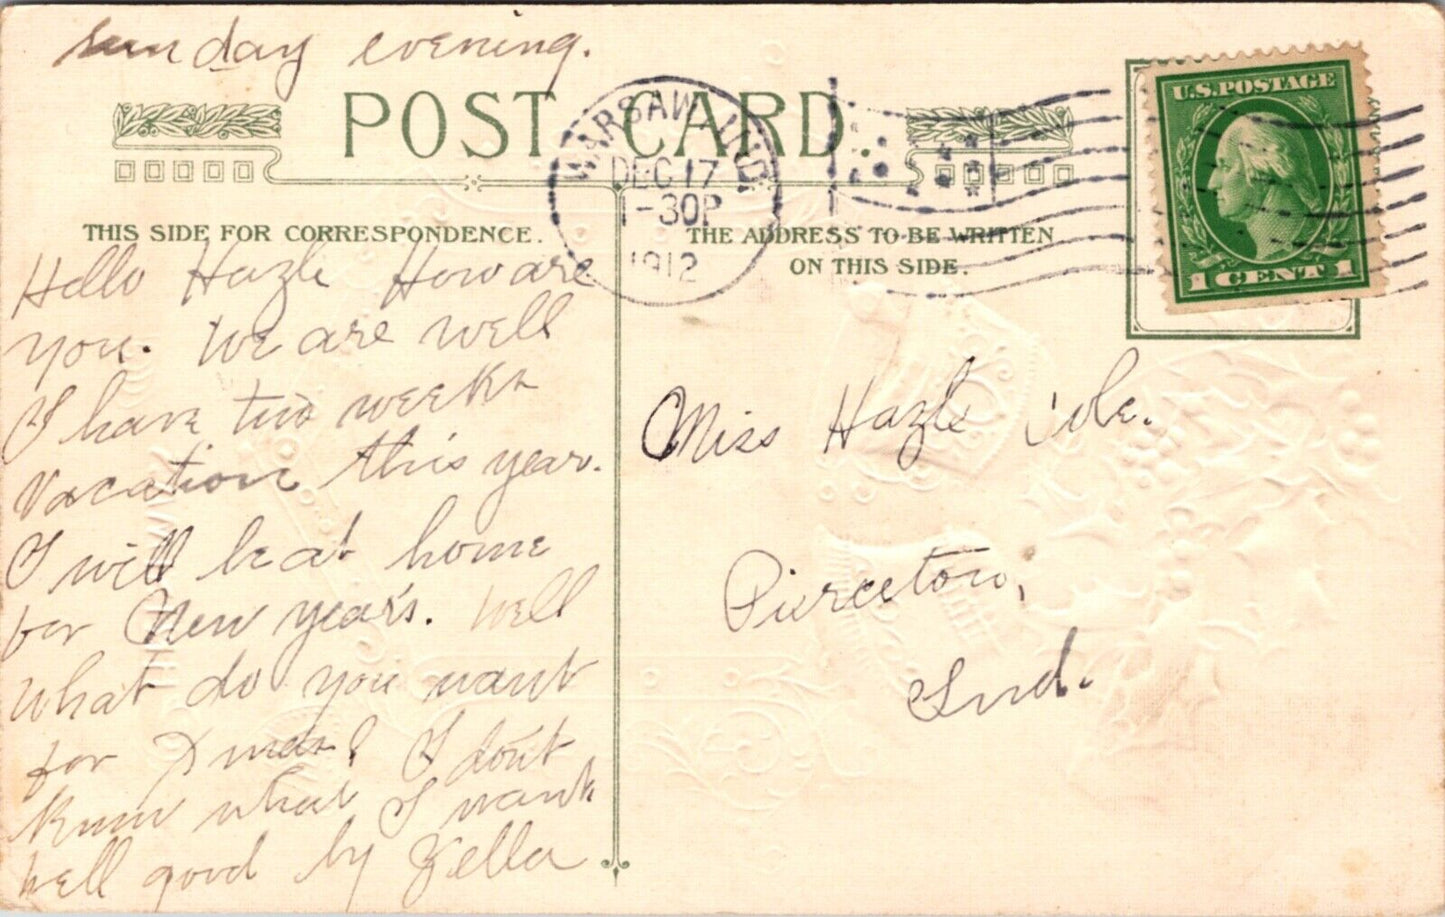 Sunday evening.
POST CARD.
WARSAW, IND.
DEC 17
1-30P
1912
U.S. POSTAGE
1 CENT 1
THIS SIDE FOR CORRESPONDENCE.
THE ADDRESS TO BE WRITTEN
ON THIS SIDE.
Hello Hazle How are
you. We are well
I have two weeks
vacation this year.
I will be at home
for New year's. Well
what do you want
for Xmas? I don't
know what I want
well good by Zella
Miss Hazle
Pierceton,
Ind.